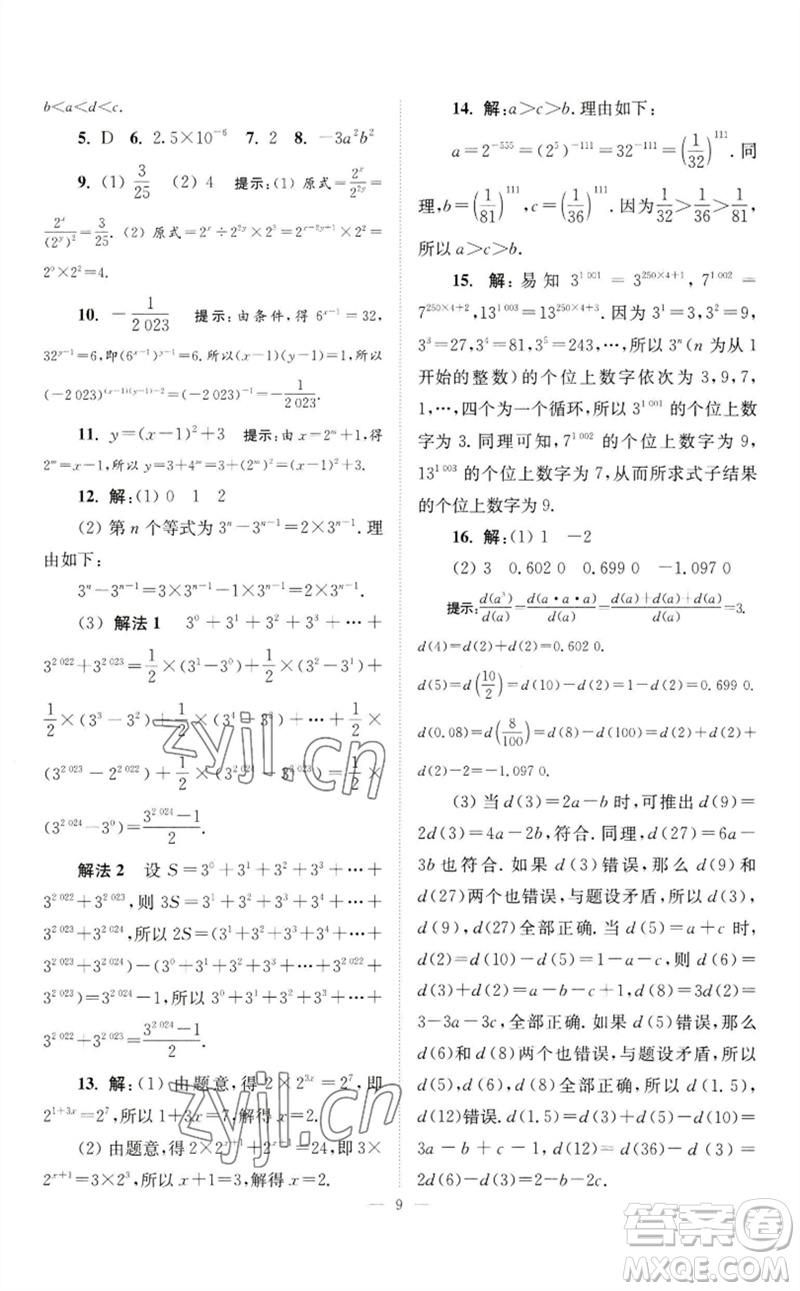 b<a<d<c.
5. D  6. 2.5×10⁻⁶  7. 2  8. −3a²b²
9. (1) 3/25  (2) 4  提示:(1) 原式=2ˣ/2²ʸ=
2ˣ/(2ʸ)²=3/25. (2) 原式=2ˣ÷2²ʸ×2²=2^(x−2y+1)×2=
2⁰×2²=4.
10. −1/2 023  提示:由条件, 得 6^(x−1)=32,
32^(y−1)=6,即(6^(x−1))^(y−1)=6. 所以(x−1)(y−1)=1.所以
(−2 023)^((x−1)(y−1)−2)=(−2 023)⁻¹=−1/2 023.
11. y=(x−1)²+3  提示:由 x=2ᵐ+1,得
2ᵐ=x−1,所以 y=3+4ᵐ=(2ᵐ)²+3=(x−1)²+3.
12. 解:(1) 0  1  2
(2) 第 n 个等式为 3ⁿ−3ⁿ⁻¹=2×3ⁿ⁻¹.理
由如下:
3ⁿ−3ⁿ⁻¹=3×3ⁿ⁻¹−1×3ⁿ⁻¹=2×3ⁿ⁻¹.
(3) 解法 1  3⁰+3¹+3²+3³+…+
3^(2 022)+3^(2 023)=1/2×(3¹−3⁰)+1/2×(3²−3¹)+
1/2×(3³−3²)+1/2×(3⁴−3³)+…+1/2×
(3^(2 023)−3^(2 022))+1/2×(3^(2 024)−3^(2 023))=1/2×
(3^(2 024)−3⁰)=(3^(2 024)−1)/2.
解法 2  设 S=3⁰+3¹+3²+3³+…+
3^(2 022)+3^(2 023),则 3S=3¹+3²+3³+…+
3^(2 023)+3^(2 024),所以 2S=(3¹+3²+3³+…+
3^(2 023)+3^(2 024))−(3⁰+3¹+3²+3³+…+3^(2 022)
+3^(2 023))=3^(2 024)−1,所以 3⁰+3¹+3²+3³+…+
3^(2 022)+3^(2 023)=(3^(2 024)−1)/2.
13. 解:(1) 由题意,得 2×2³ˣ=2⁷,即
2^(1+3x)=2⁷,所以 1+3x=7,解得 x=2.
(2) 由题意,得 2×2^(x+1)+2^(x+1)=24,即 3×
2^(x+1)=3×2³,所以 x+1=3,解得 x=2.
14. 解:a>c>b. 理由如下:
a=2⁻⁵⁵⁵=(2⁵)⁻¹¹¹=32⁻¹¹¹=(1/32)¹¹¹. 同
理,b=(1/81)¹¹¹,c=(1/36)¹¹¹. 因为1/32>1/36>1/81,
所以 a>c>b.
15. 解:易知 3^(1 001)=3^(250×4+1), 7^(1 002)=
7^(250×4+2),13^(1 003)=13^(250×4+3). 因为 3¹=3,3²=9,
3³=27,3⁴=81,3⁵=243,…,所以 3ⁿ(n 为从 1
开始的整数)的个位上数字依次为 3,9,7,
1,…,四个为一个循环,所以 3^(1 001)的个位上数
字为 3. 同理可知,7^(1 002)的个位上数字为 9,
13^(1 003)的个位上数字为 7,从而所求式子结果
的个位上数字为 9.
16. 解:(1) 1  −2
(2) 3  0.602 0  0.699 0  −1.097 0
提示:d(a³)/d(a)=d(a·a·a)/d(a)=(d(a)+d(a)+d(a))/d(a)=3.
d(4)=d(2)+d(2)=0.602 0.
d(5)=d(10/2)=d(10)−d(2)=1−d(2)=0.699 0.
d(0.08)=d(8/100)=d(8)−d(100)=d(2)+d(2)+
d(2)−2=−1.097 0.
(3) 当 d(3)=2a−b 时,可推出 d(9)=
2d(3)=4a−2b,符合. 同理,d(27)=6a−
3b 也符合. 如果 d(3)错误,那么 d(9)和
d(27)两个也错误,与题设矛盾,所以 d(3),
d(9),d(27)全部正确. 当 d(5)=a+c 时,
d(2)=d(10)−d(5)=1−a−c,则 d(6)=
d(2)+d(3)=1+a−b−c,d(8)=3d(2)=
3−3a−3c,全部正确. 如果 d(5)错误,那么
d(6)和 d(8)两个也错误,与题设矛盾,所以
d(5),d(6),d(8)全部正确. 所以 d(1.5),
d(12)错误. d(1.5)=d(3)+d(5)−1=
3a−b+c−1,d(12)=d(36)−d(3)=
2d(6)−d(3)=2−b−2c.
9
zyjl.cn
zyjl.cn
答案圈
MXQE.COM